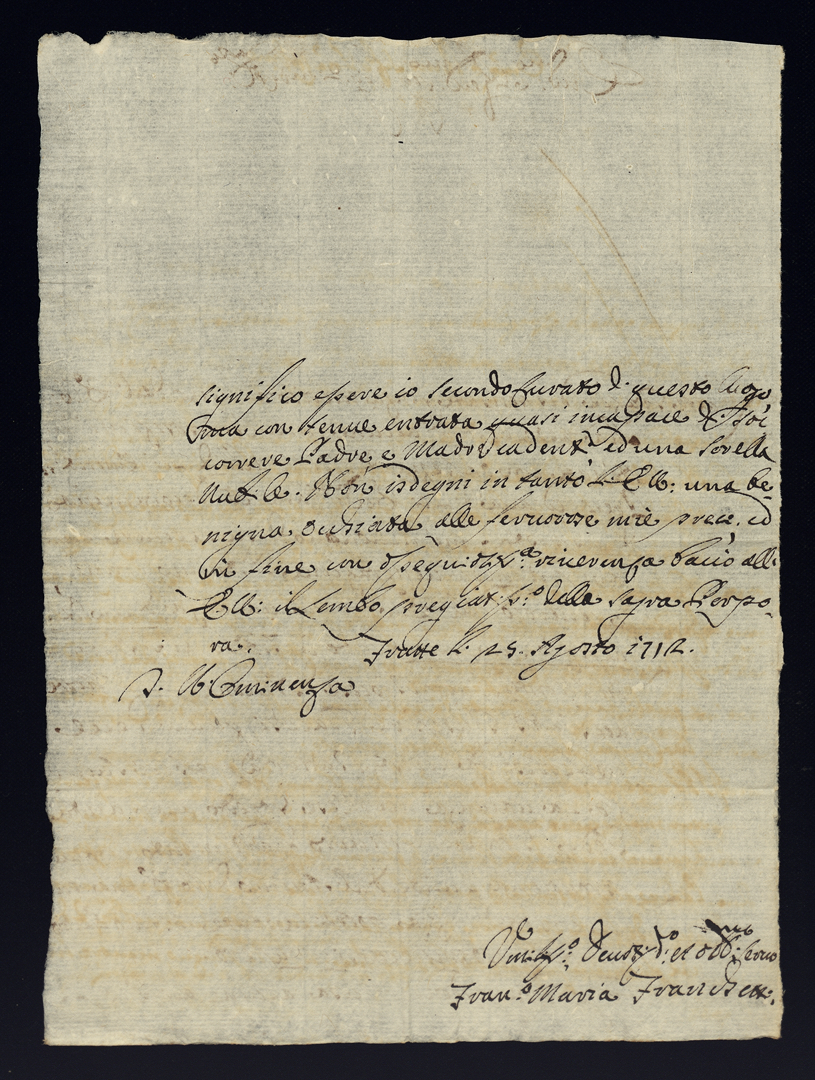 significo essere io secondo Curato di questo luogo
ma con tenue entrata quasi incapace di
correre Padre, e Madre cadenti ed una sorella
Nubile. Non isdegni in tanto l'E.V: una be-
nigna occhiata alle fervorose mie preci, ed
in fine con ossequiosiss.a riverenza bacio all'
E.V: il lembo pregiatiss.o della sagra Porpo-
ra. Fratte li 25. Agosto 1712.
D. V. Eminenza
Umiliss.o Devotiss.o et obb.mo servo
Fran.o Maria